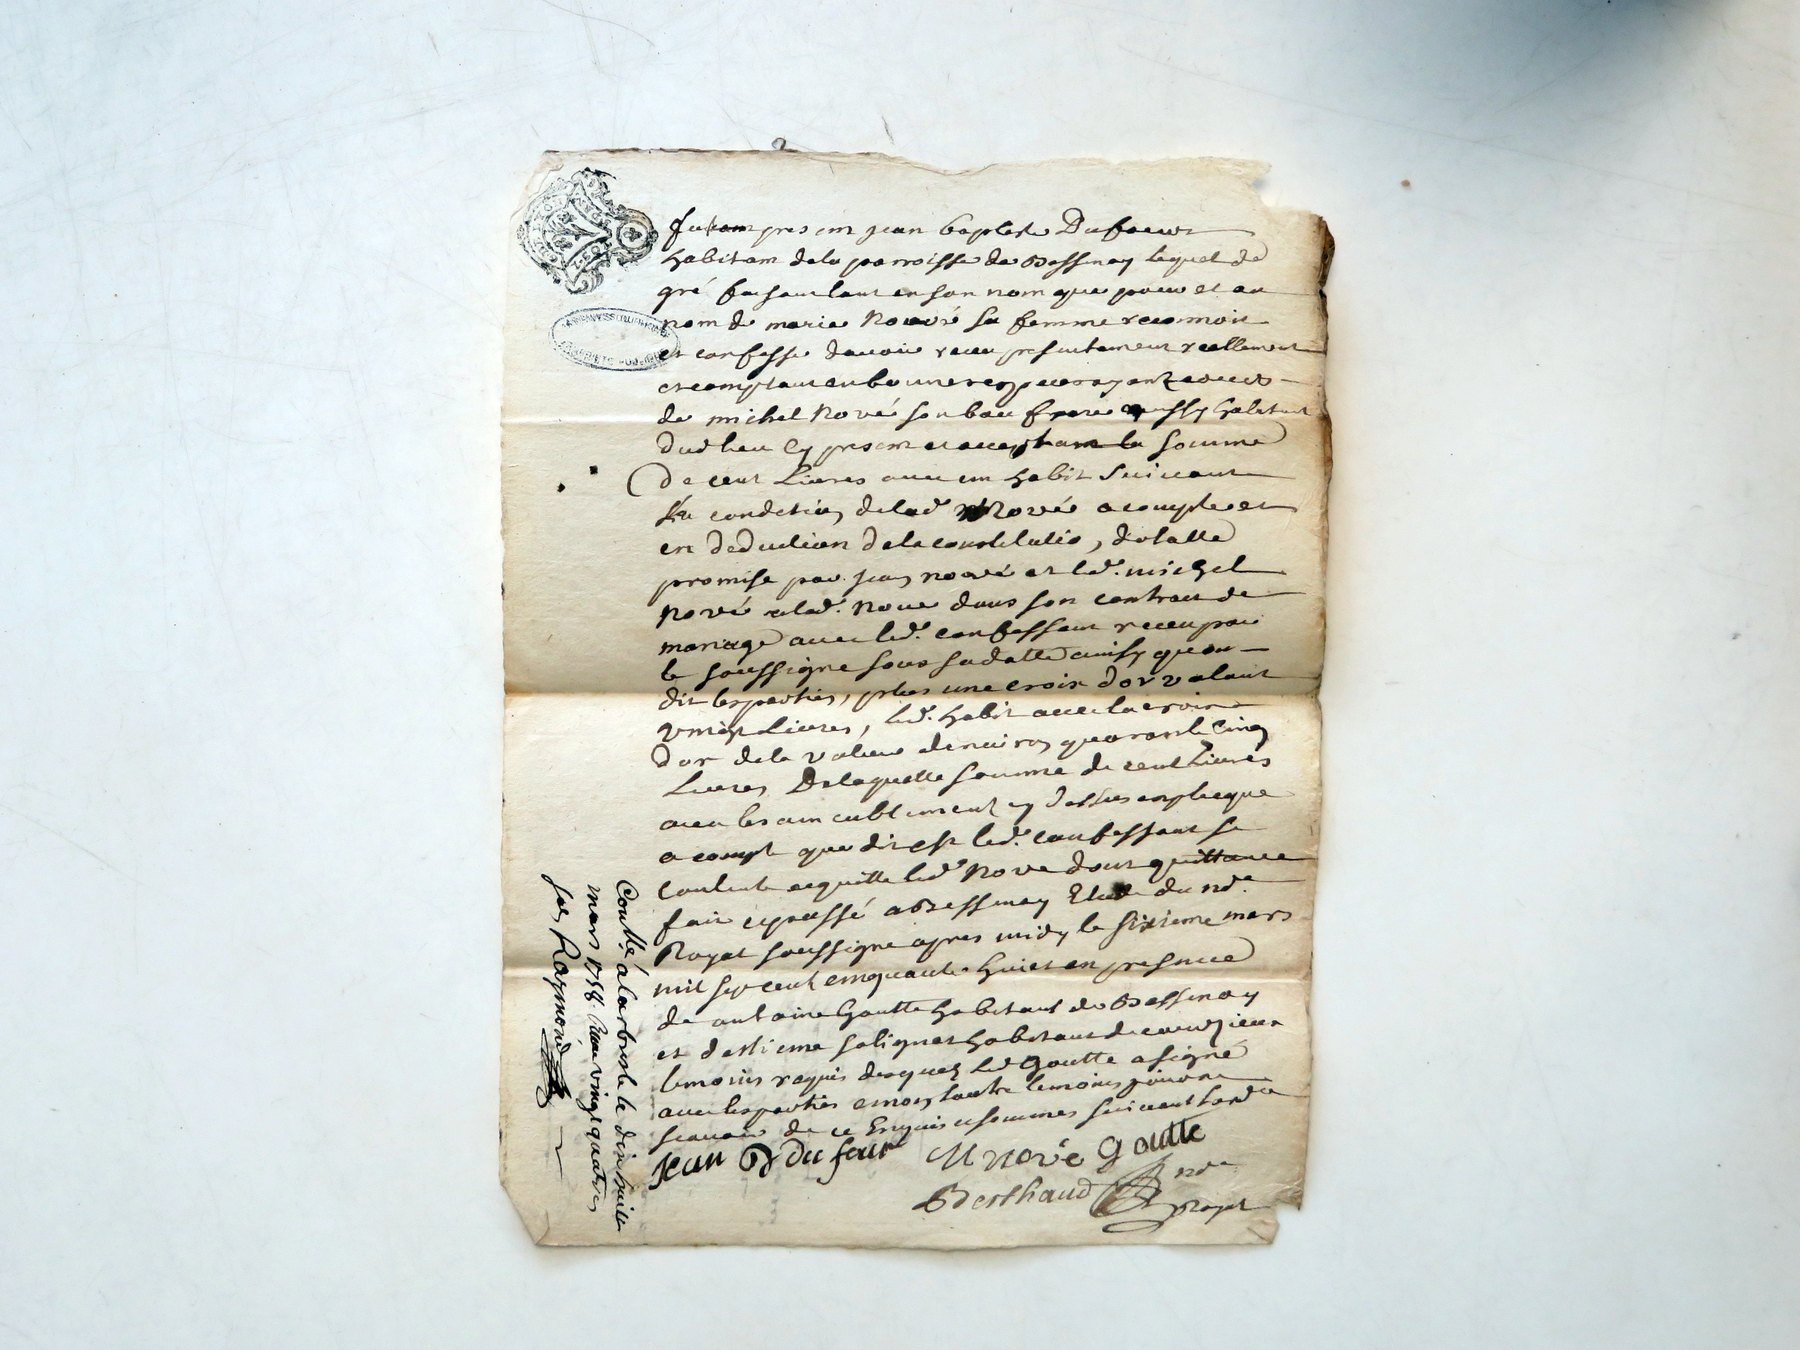 fut present jean baptiste Dufour
habitant dela parroisse de Bessenay lequel de
gré faisant tant en son nom que pour et au
nom de marie Nové sa femme reconnoit
et confesse davoir receu presentement reellement
et comptant en bonnes espèces ayant cours
de michel Nové son beau frere aussy habitant
dud lieu Cy present et acceptant la somme
De cent Livres avec un habit suivant
la condition de lad. Nové a compte et
en deduction dela constitution, dotalle
promise par jean nové et led. michel
Nové a lad. Nové dans son contrat de
mariage avec led. confessant receu par
le soussigné sous sa datte ainsy quon
dit les parties, plus une croix dor valant
vingt Livres, led. habit avec la croix
dor de la valeur denviron quarante Cinq
Livres, De laquelle somme de cent Livres
avec les ameublement cy dessus expliqué
a compt que dit est led. confessant se
contente acquitte led Nové dont quittance
fait et passé a Bessenay Etude du nore
Royal soussigné apres midy le sixieme mars
mil sept cent cinquante huict en presence
de antoine Goutte habitant de Bessenay
et destiene habitant de
temoins requis desquels led Goutte a signé
avec les parties e non lautre temoins pour ne
scavoir de ce Enquis et sommes suivant lord.e
Jean B du four M nové Goutte
Berthaud nore
Royal
Contlé a larbresle le dix huitt
mars 1758. Reçu vingt quatre
sols Raymond